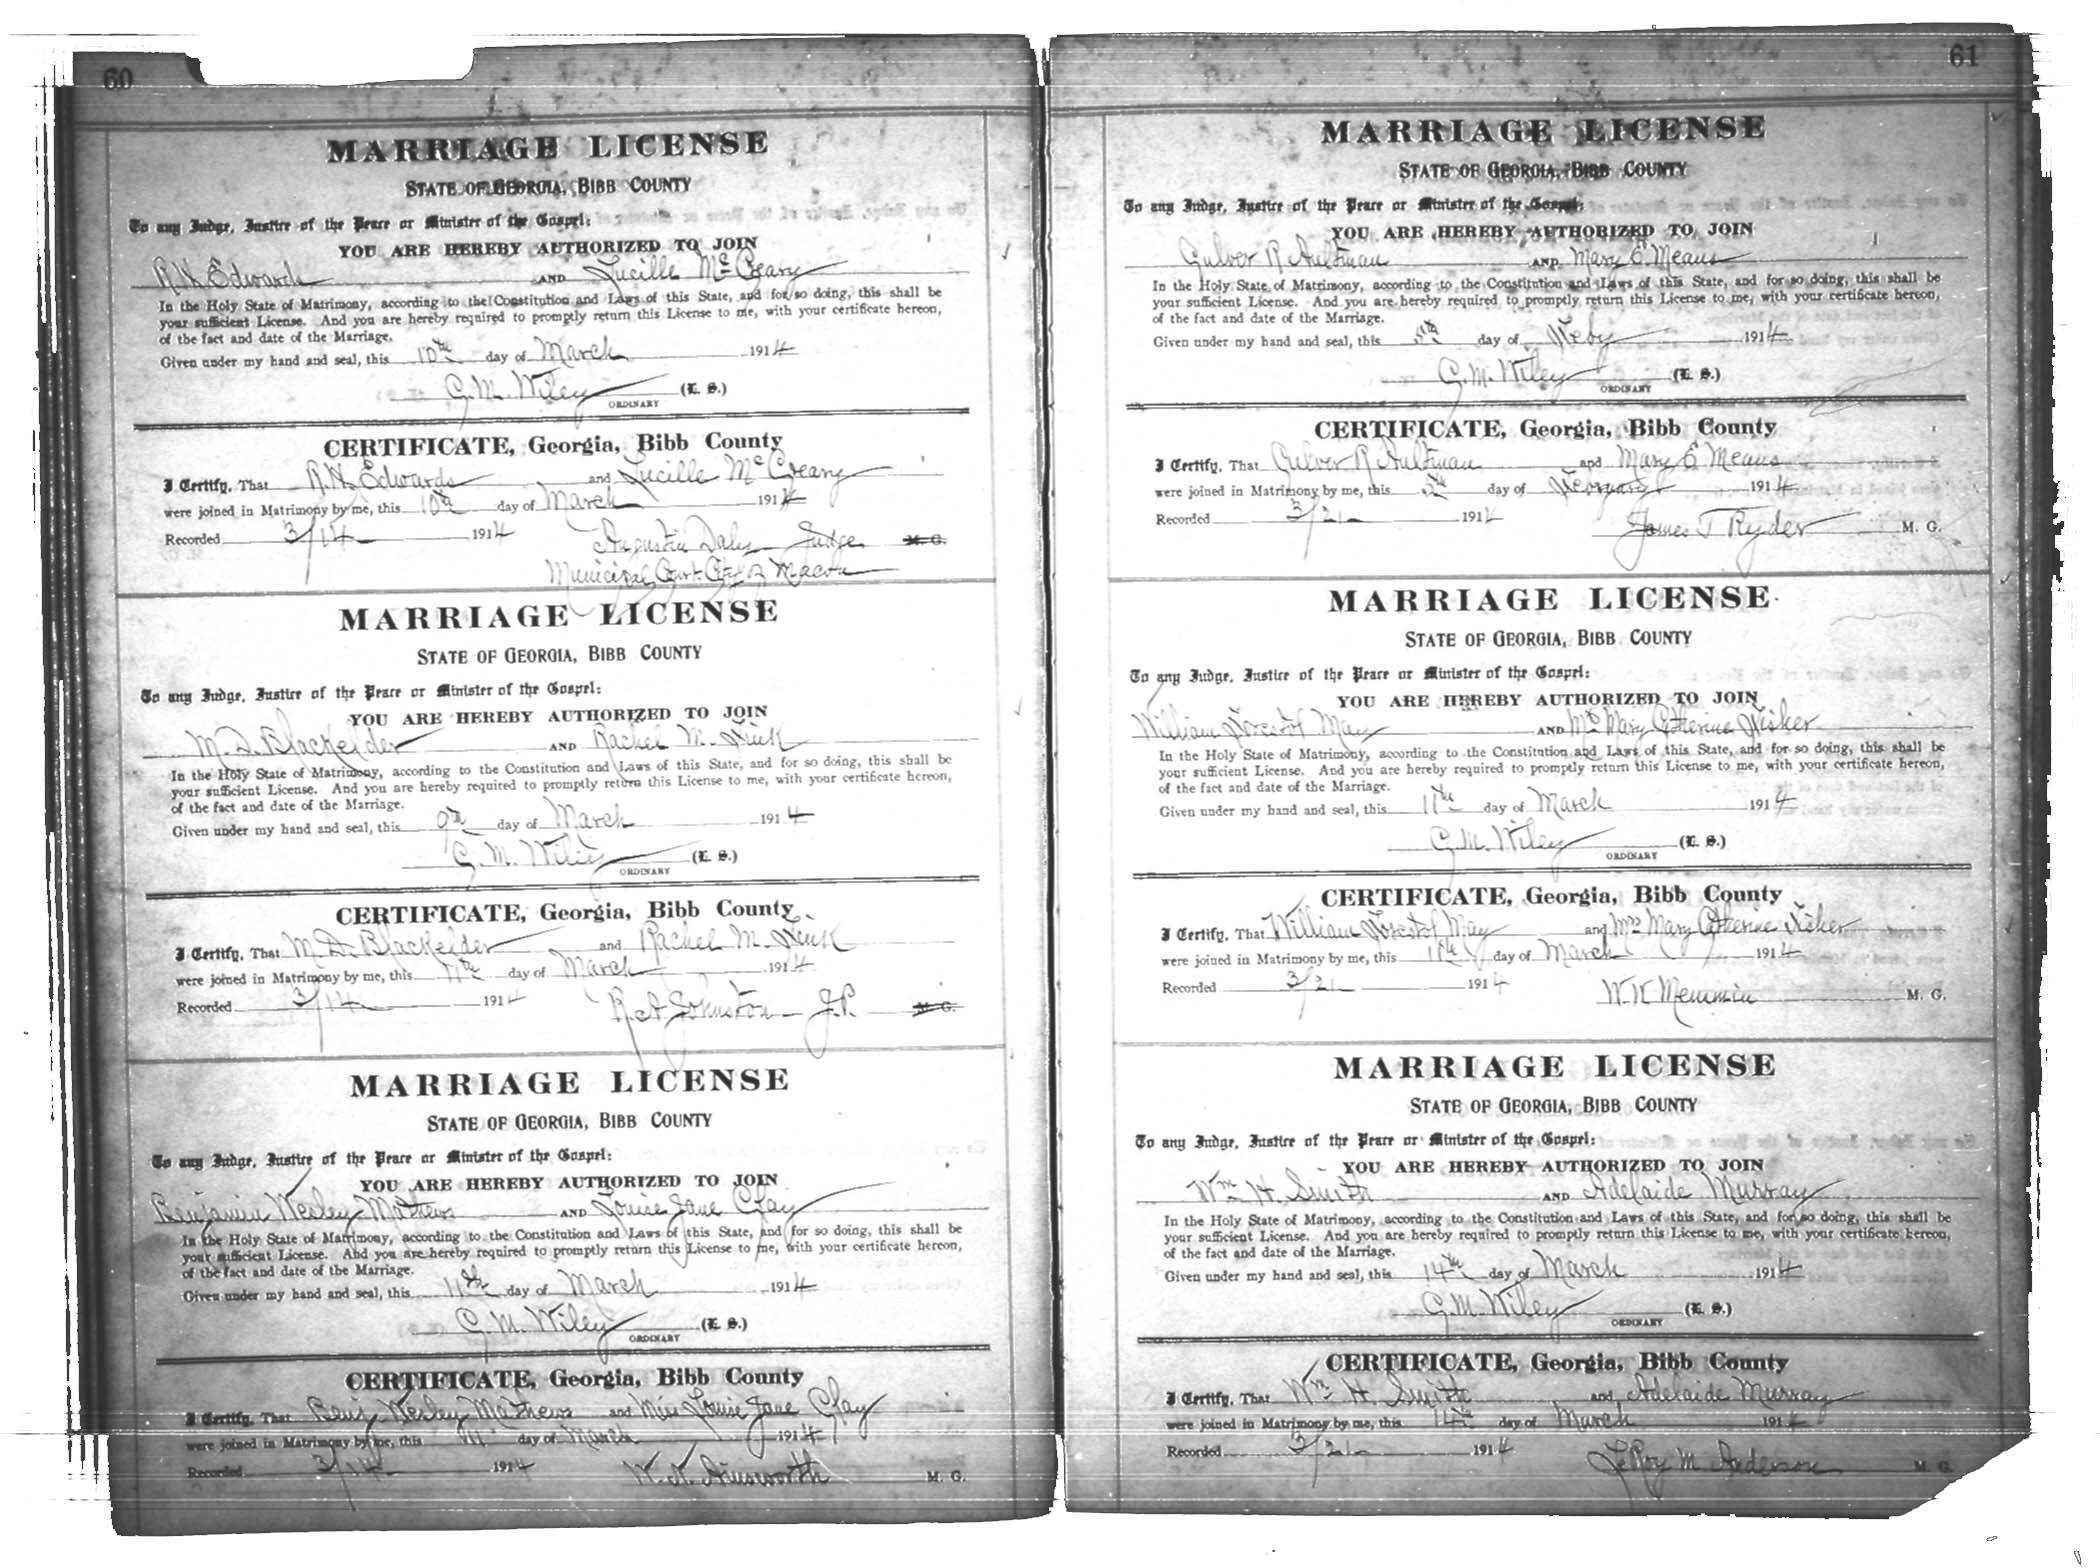 60
MARRIAGE LICENSE
STATE OF GEORGIA, BIBB COUNTY
To any Judge, Justice of the Peace or Minister of the Gospel:
YOU ARE HEREBY AUTHORIZED TO JOIN
R. H. Edwards AND Lucille McCreary
In the Holy State of Matrimony, according to the Constitution and Laws of this State, and for so doing, this shall be
your sufficient License. And you are hereby required to promptly return this License to me, with your certificate hereon,
of the fact and date of the Marriage.
Given under my hand and seal, this 10th day of March 1914
C. M. Wiley (L. S.)
ORDINARY
CERTIFICATE, Georgia, Bibb County
I Certify, That R. H. Edwards and Lucille McCreary
were joined in Matrimony by me, this 10th day of March 1914
Recorded 3/14 1914 Augustin Daly Judge M. G.
Municipal Court City of Macon
MARRIAGE LICENSE
STATE OF GEORGIA, BIBB COUNTY
To any Judge, Justice of the Peace or Minister of the Gospel:
YOU ARE HEREBY AUTHORIZED TO JOIN
M. D. Blackelder AND Rachel M.
In the Holy State of Matrimony, according to the Constitution and Laws of this State, and for so doing, this shall be
your sufficient License. And you are hereby required to promptly return this License to me, with your certificate hereon,
of the fact and date of the Marriage.
Given under my hand and seal, this 9th day of March 1914
C. M. Wiley (L. S.)
ORDINARY
CERTIFICATE, Georgia, Bibb County
I Certify, That M. D. Blackelder and Rachel M.
were joined in Matrimony by me, this 11th day of March 1914
Recorded 3/14 1914 R. A. Johnston J.P. M. G.
MARRIAGE LICENSE
STATE OF GEORGIA, BIBB COUNTY
To any Judge, Justice of the Peace or Minister of the Gospel:
YOU ARE HEREBY AUTHORIZED TO JOIN
Benjamin Wesley Mathews AND Louise Jane Clay
In the Holy State of Matrimony, according to the Constitution and Laws of this State, and for so doing, this shall be
your sufficient License. And you are hereby required to promptly return this License to me, with your certificate hereon,
of the fact and date of the Marriage.
Given under my hand and seal, this 11th day of March 1914
C. M. Wiley (L. S.)
ORDINARY
CERTIFICATE, Georgia, Bibb County
I Certify, That Benj Wesley Mathews and Miss Louise Jane Clay
were joined in Matrimony by me, this 11" day of March 1914
Recorded 3/14 1914 W. N. Ainsworth M. G.
61
MARRIAGE LICENSE
STATE OF GEORGIA, BIBB COUNTY
To any Judge, Justice of the Peace or Minister of the Gospel:
YOU ARE HEREBY AUTHORIZED TO JOIN
Culver R Aultman AND Mary E. Means
In the Holy State of Matrimony, according to the Constitution and Laws of this State, and for so doing, this shall be
your sufficient License. And you are hereby required to promptly return this License to me, with your certificate hereon,
of the fact and date of the Marriage.
Given under my hand and seal, this 5th day of Feby 1914
C. M. Wiley (L. S.)
ORDINARY
CERTIFICATE, Georgia, Bibb County
I Certify, That Culver R Aultman and Mary E Means
were joined in Matrimony by me, this 5th day of February 1914
Recorded 3/21 1914 James T Ryder M. G.
MARRIAGE LICENSE
STATE OF GEORGIA, BIBB COUNTY
To any Judge, Justice of the Peace or Minister of the Gospel:
YOU ARE HEREBY AUTHORIZED TO JOIN
William Forest May AND Mrs Mary Catherine Fisher
In the Holy State of Matrimony, according to the Constitution and Laws of this State, and for so doing, this shall be
your sufficient License. And you are hereby required to promptly return this License to me, with your certificate hereon,
of the fact and date of the Marriage.
Given under my hand and seal, this 11th day of March 1914
C. M. Wiley (L. S.)
ORDINARY
CERTIFICATE, Georgia, Bibb County
I Certify, That William Forest May and Mrs Mary Catherine Fisher
were joined in Matrimony by me, this 11th day of March 1914
Recorded 3/21 1914 W. K Memmin M. G.
MARRIAGE LICENSE
STATE OF GEORGIA, BIBB COUNTY
To any Judge, Justice of the Peace or Minister of the Gospel:
YOU ARE HEREBY AUTHORIZED TO JOIN
Wm H. Smith AND Adelaide Murray
In the Holy State of Matrimony, according to the Constitution and Laws of this State, and for so doing, this shall be
your sufficient License. And you are hereby required to promptly return this License to me, with your certificate hereon,
of the fact and date of the Marriage.
Given under my hand and seal, this 14th day of March 1914
C. M. Wiley (L. S.)
ORDINARY
CERTIFICATE, Georgia, Bibb County
I Certify, That Wm H. Smith and Adelaide Murray
were joined in Matrimony by me, this 14th day of March 1914
Recorded 3/21 1914 LeRoy M Anderson M. G.